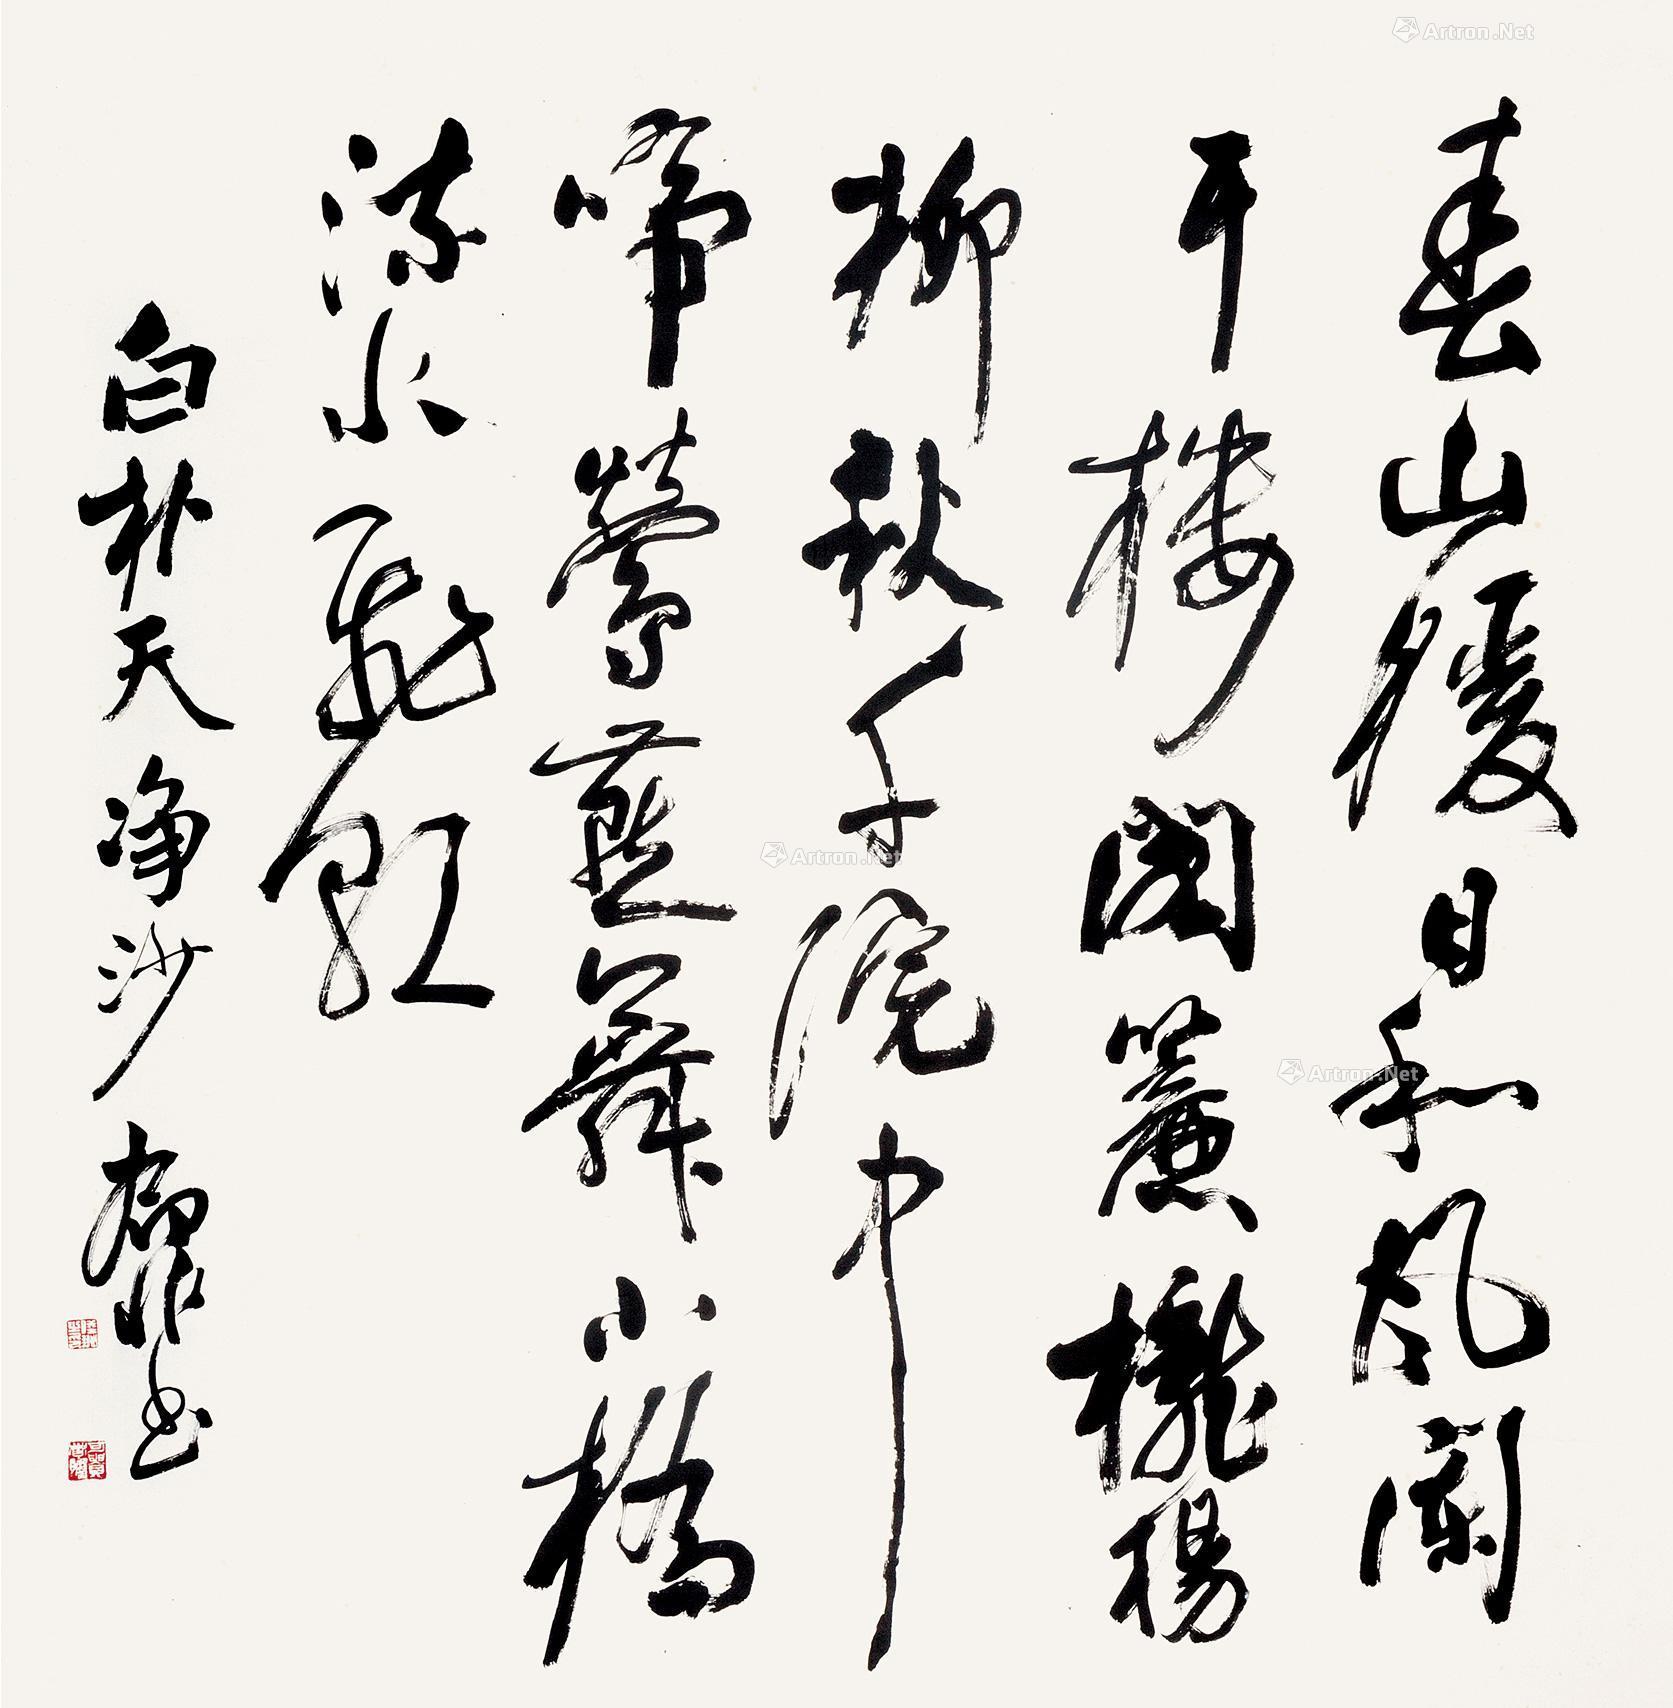 春山暖日和风阑
干楼阁簾櫳楊
柳秋千院中
啼鶯燕舞小橋
流水飛紅
白朴天净沙
书
Artron.Net
Artron.Net
Artron.Net